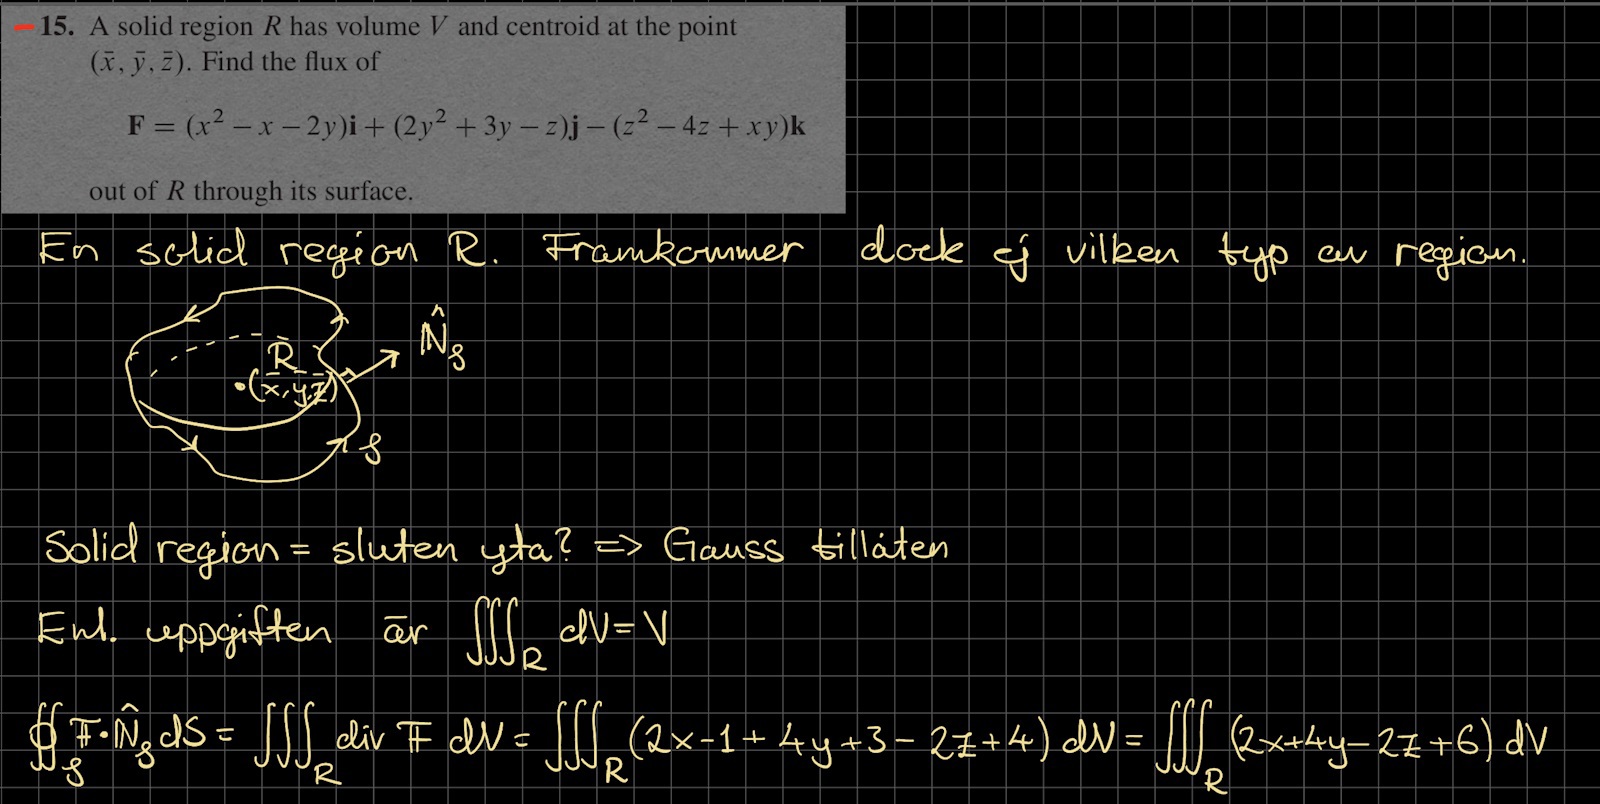 15. A solid region R has volume V and centroid at the point
(x̄, ȳ, z̄). Find the flux of
F = (x² − x − 2y)i + (2y² + 3y − z)j − (z² − 4z + xy)k
out of R through its surface.
En solid region R. Framkommer dock ej vilken typ av region.
N̂_S
R
(x̄, ȳ, z̄)
S
Solid region = sluten yta? => Gauss tillåten
Enl. uppgiften är ∭_R dV = V
∯_S F • N̂_S dS = ∭_R div F dV = ∭_R (2x-1+4y+3-2z+4) dV = ∭_R (2x+4y-2z+6) dV